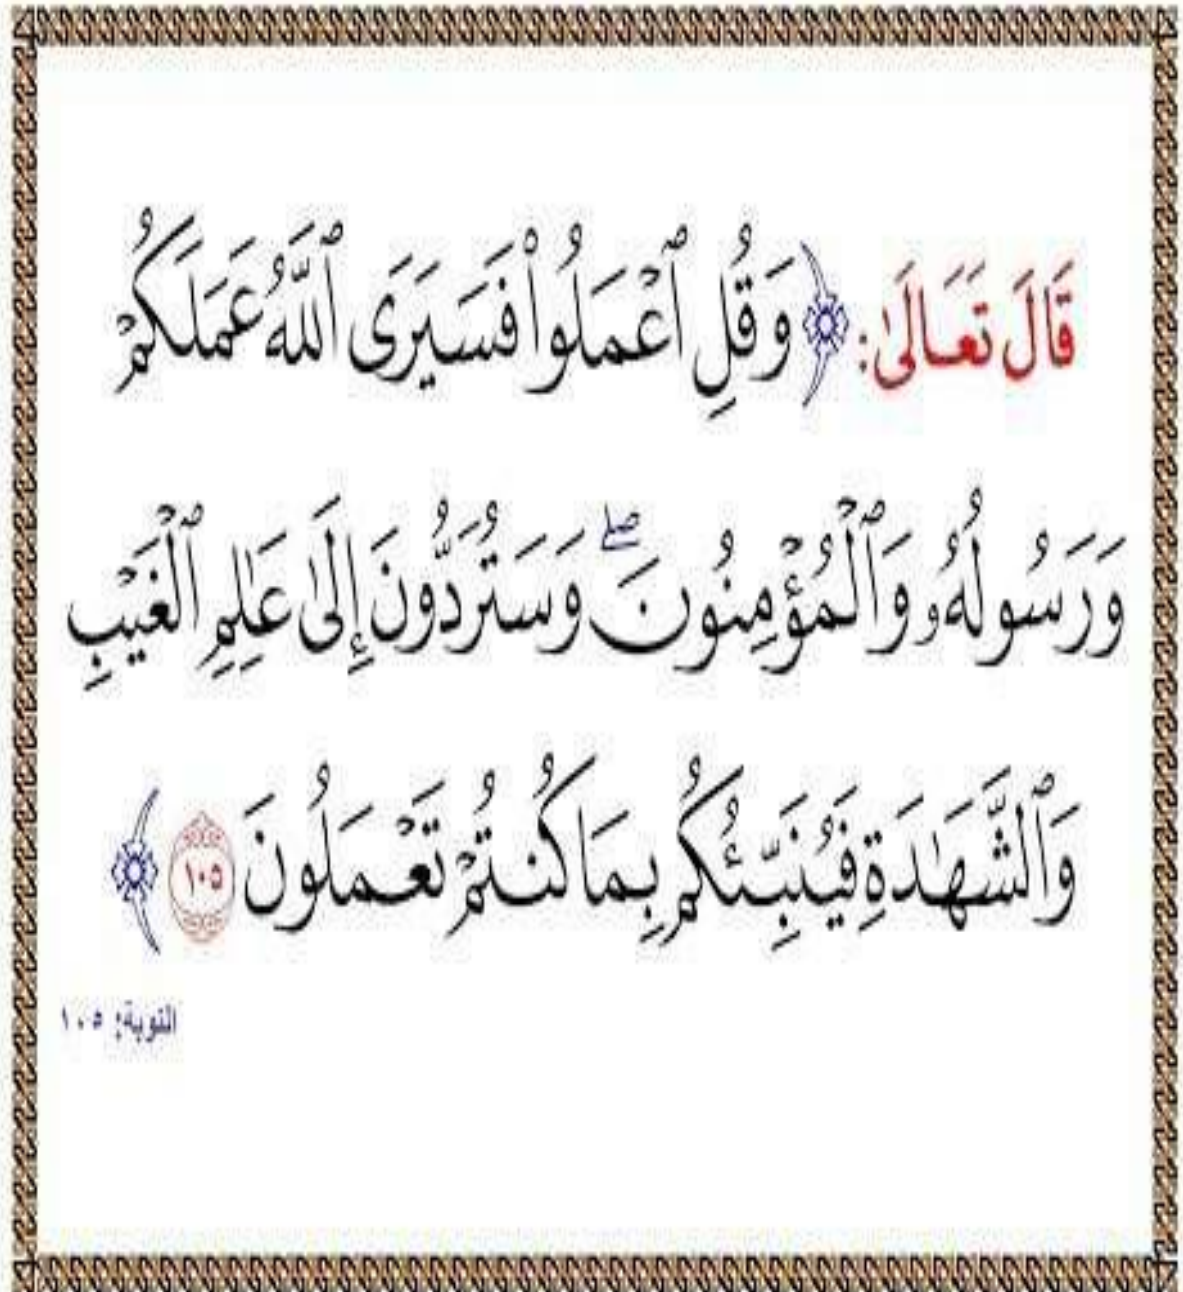 قَالَ تَعَالَىٰ: ﴿وَقُلِ ٱعْمَلُوا۟ فَسَيَرَى ٱللَّهُ عَمَلَكُمْ
وَرَسُولُهُۥ وَٱلْمُؤْمِنُونَ ۖ وَسَتُرَدُّونَ إِلَىٰ عَٰلِمِ ٱلْغَيْبِ
وَٱلشَّهَٰدَةِ فَيُنَبِّئُكُم بِمَا كُنتُمْ تَعْمَلُونَ ١٠٥﴾
التوبة: ١٠٥